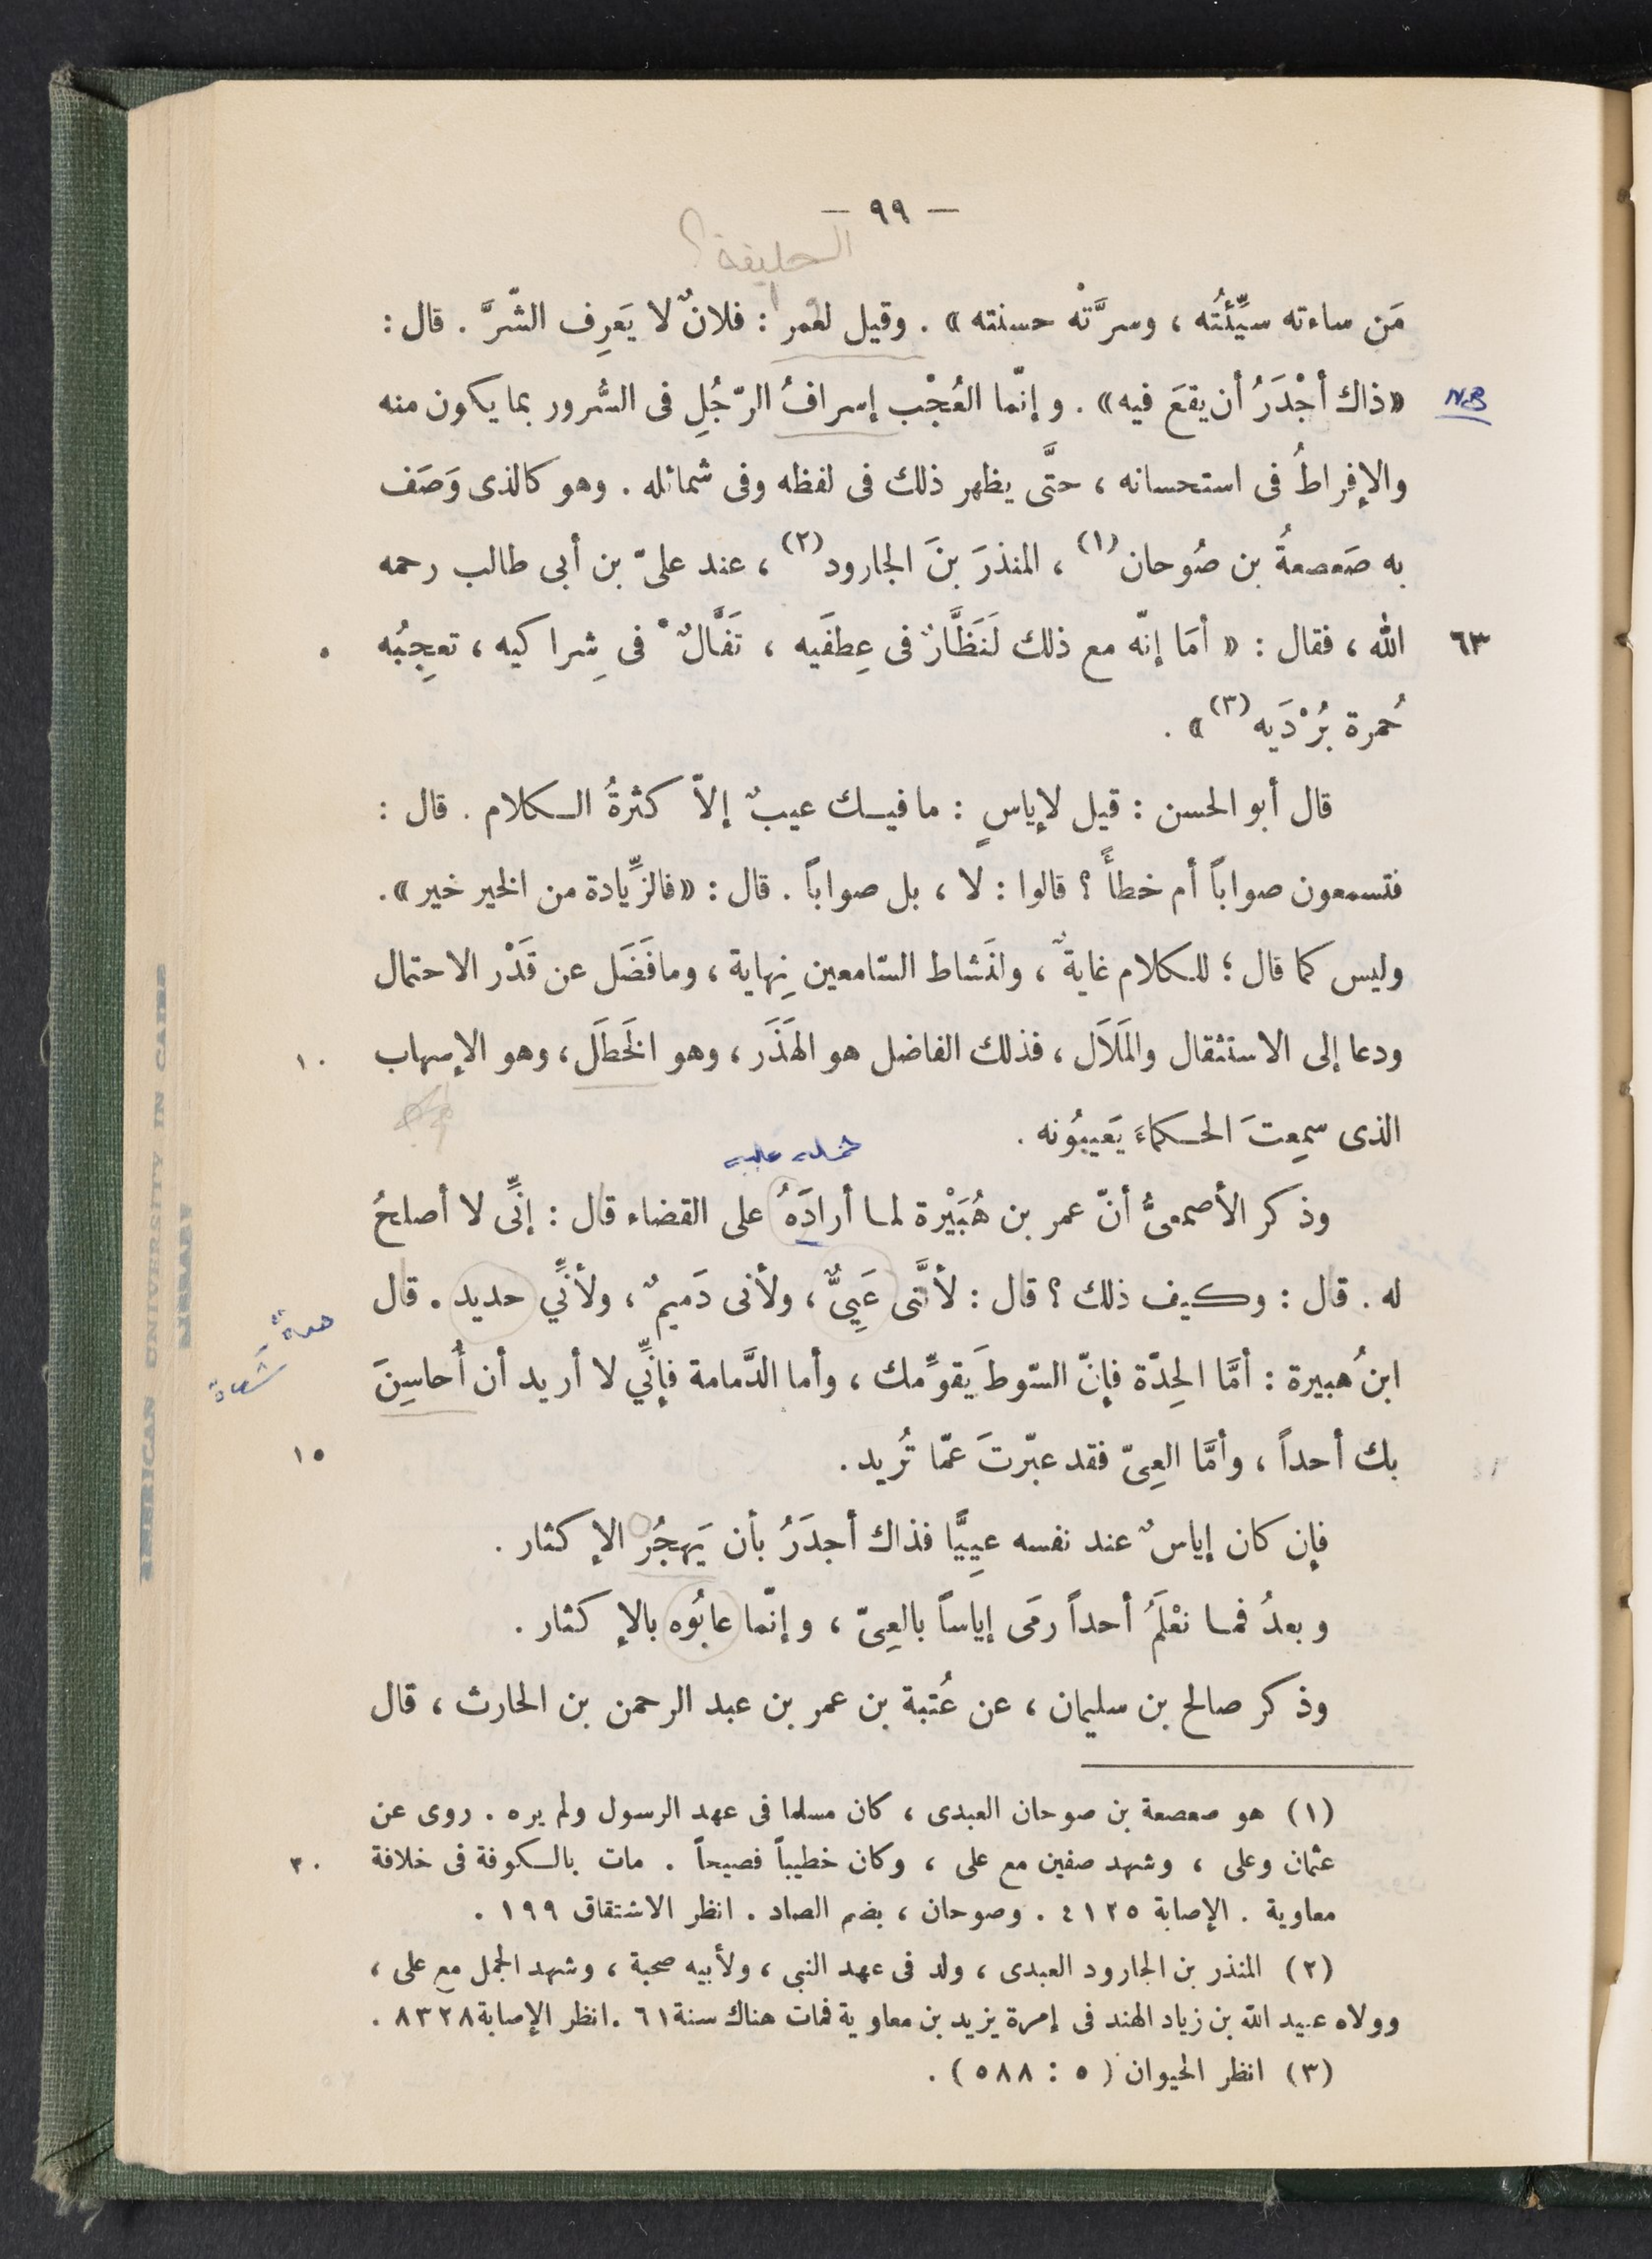 — ٩٩ —
الخليفة؟
مَن ساءته سيِّئتُه ، وسرَّتْه حسنته » . وقيل لعمر : فلانٌ لا يَعرِف الشّرَّ . قال :
NB «ذاك أجْدَرُ أن يقعَ فيه» . وإنّما العُجْب إسرافُ الرّجُلِ فى السُّرور بما يكون منه
والإفراطُ فى استحسانه ، حتَّى يظهر ذلك فى لفظه وفى شمائله . وهو كالذى وَصَف
به صَعصعةُ بن صُوحان(١) ، المنذرَ بنَ الجارود(٢) ، عند علىّ بن أبى طالب رحمه
٦٣ الله ، فقال : « أمَا إنّه مع ذلك لَنَظَّارٌ فى عِطفَيه ، تَفَّالٌ فى شِراكيه ، تعجِبُه ٥
حُمرة بُرْدَيه(٣) » .
قال أبو الحسن : قيل لإياسٍ : ما فيك عيبٌ إلاّ كثرةُ الكلام . قال :
فتسمعون صواباً أم خطأً ؟ قالوا : لا ، بل صواباً . قال : «فالزِّيادة من الخير خير» .
وليس كما قال ؛ للكلام غايةٌ ، ولنَشاط السّامعين نِهاية ، وما فَضَل عن قَدْر الاحتمال
ودعا إلى الاستثقال والمَلَال ، فذلك الفاضل هو الهَذَر ، وهو الخَطَل ، وهو الإسهاب ١٠
الذى سمِعتَ الحكماءَ يَعيبُونه .
وذكر الأصمعىُّ أنّ عمر بن هُبَيْرة لما أرادَهُ على القضاء قال : إنِّى لا أصلحُ
له . قال : وكيف ذلك ؟ قال : لأنَّى عَيِىٌّ ، ولأنى دَميمٌ ، ولأنِّي حديد . قال
ابنُ هُبيرة : أمَّا الحِدّة فإنّ السّوطَ يقوِّمك ، وأما الدَّمامة فإنِّي لا أريد أن أُحاسِنَ
بك أحداً ، وأمَّا العِىّ فقد عبّرتَ عمّا تُريد . ١٥
فإن كان إياسٌ عند نفسه عيِيًّا فذاك أجدَرُ بأن يَهجُر الإكثار .
وبعدُ فما نعْلَمُ أحداً رمَى إياساً بالعِىّ ، وإنّما عابُوه بالإكثار .
وذكر صالح بن سليمان ، عن عُتبة بن عمر بن عبد الرحمن بن الحارث ، قال
(١) هو صعصعة بن صوحان العبدى ، كان مسلما فى عهد الرسول ولم يره . روى عن
عثمان وعلى ، وشهد صفين مع على ، وكان خطيباً فصيحاً . مات بالكوفة فى خلافة ٢٠
معاوية . الإصابة ٤١٢٥ . وصوحان ، بضم الصاد . انظر الاشتقاق ١٩٩ .
(٢) المنذر بن الجارود العبدى ، ولد فى عهد النبى ، ولأبيه صحبة ، وشهد الجمل مع على ،
وولاه عبيد الله بن زياد الهند فى إمرة يزيد بن معاوية فمات هناك سنة ٦١ . انظر الإصابة ٨٣٢٨ .
(٣) انظر الحيوان (٥ : ٥٨٨) .
AMERICAN UNIVERSITY IN CAIRO
LIBRARY